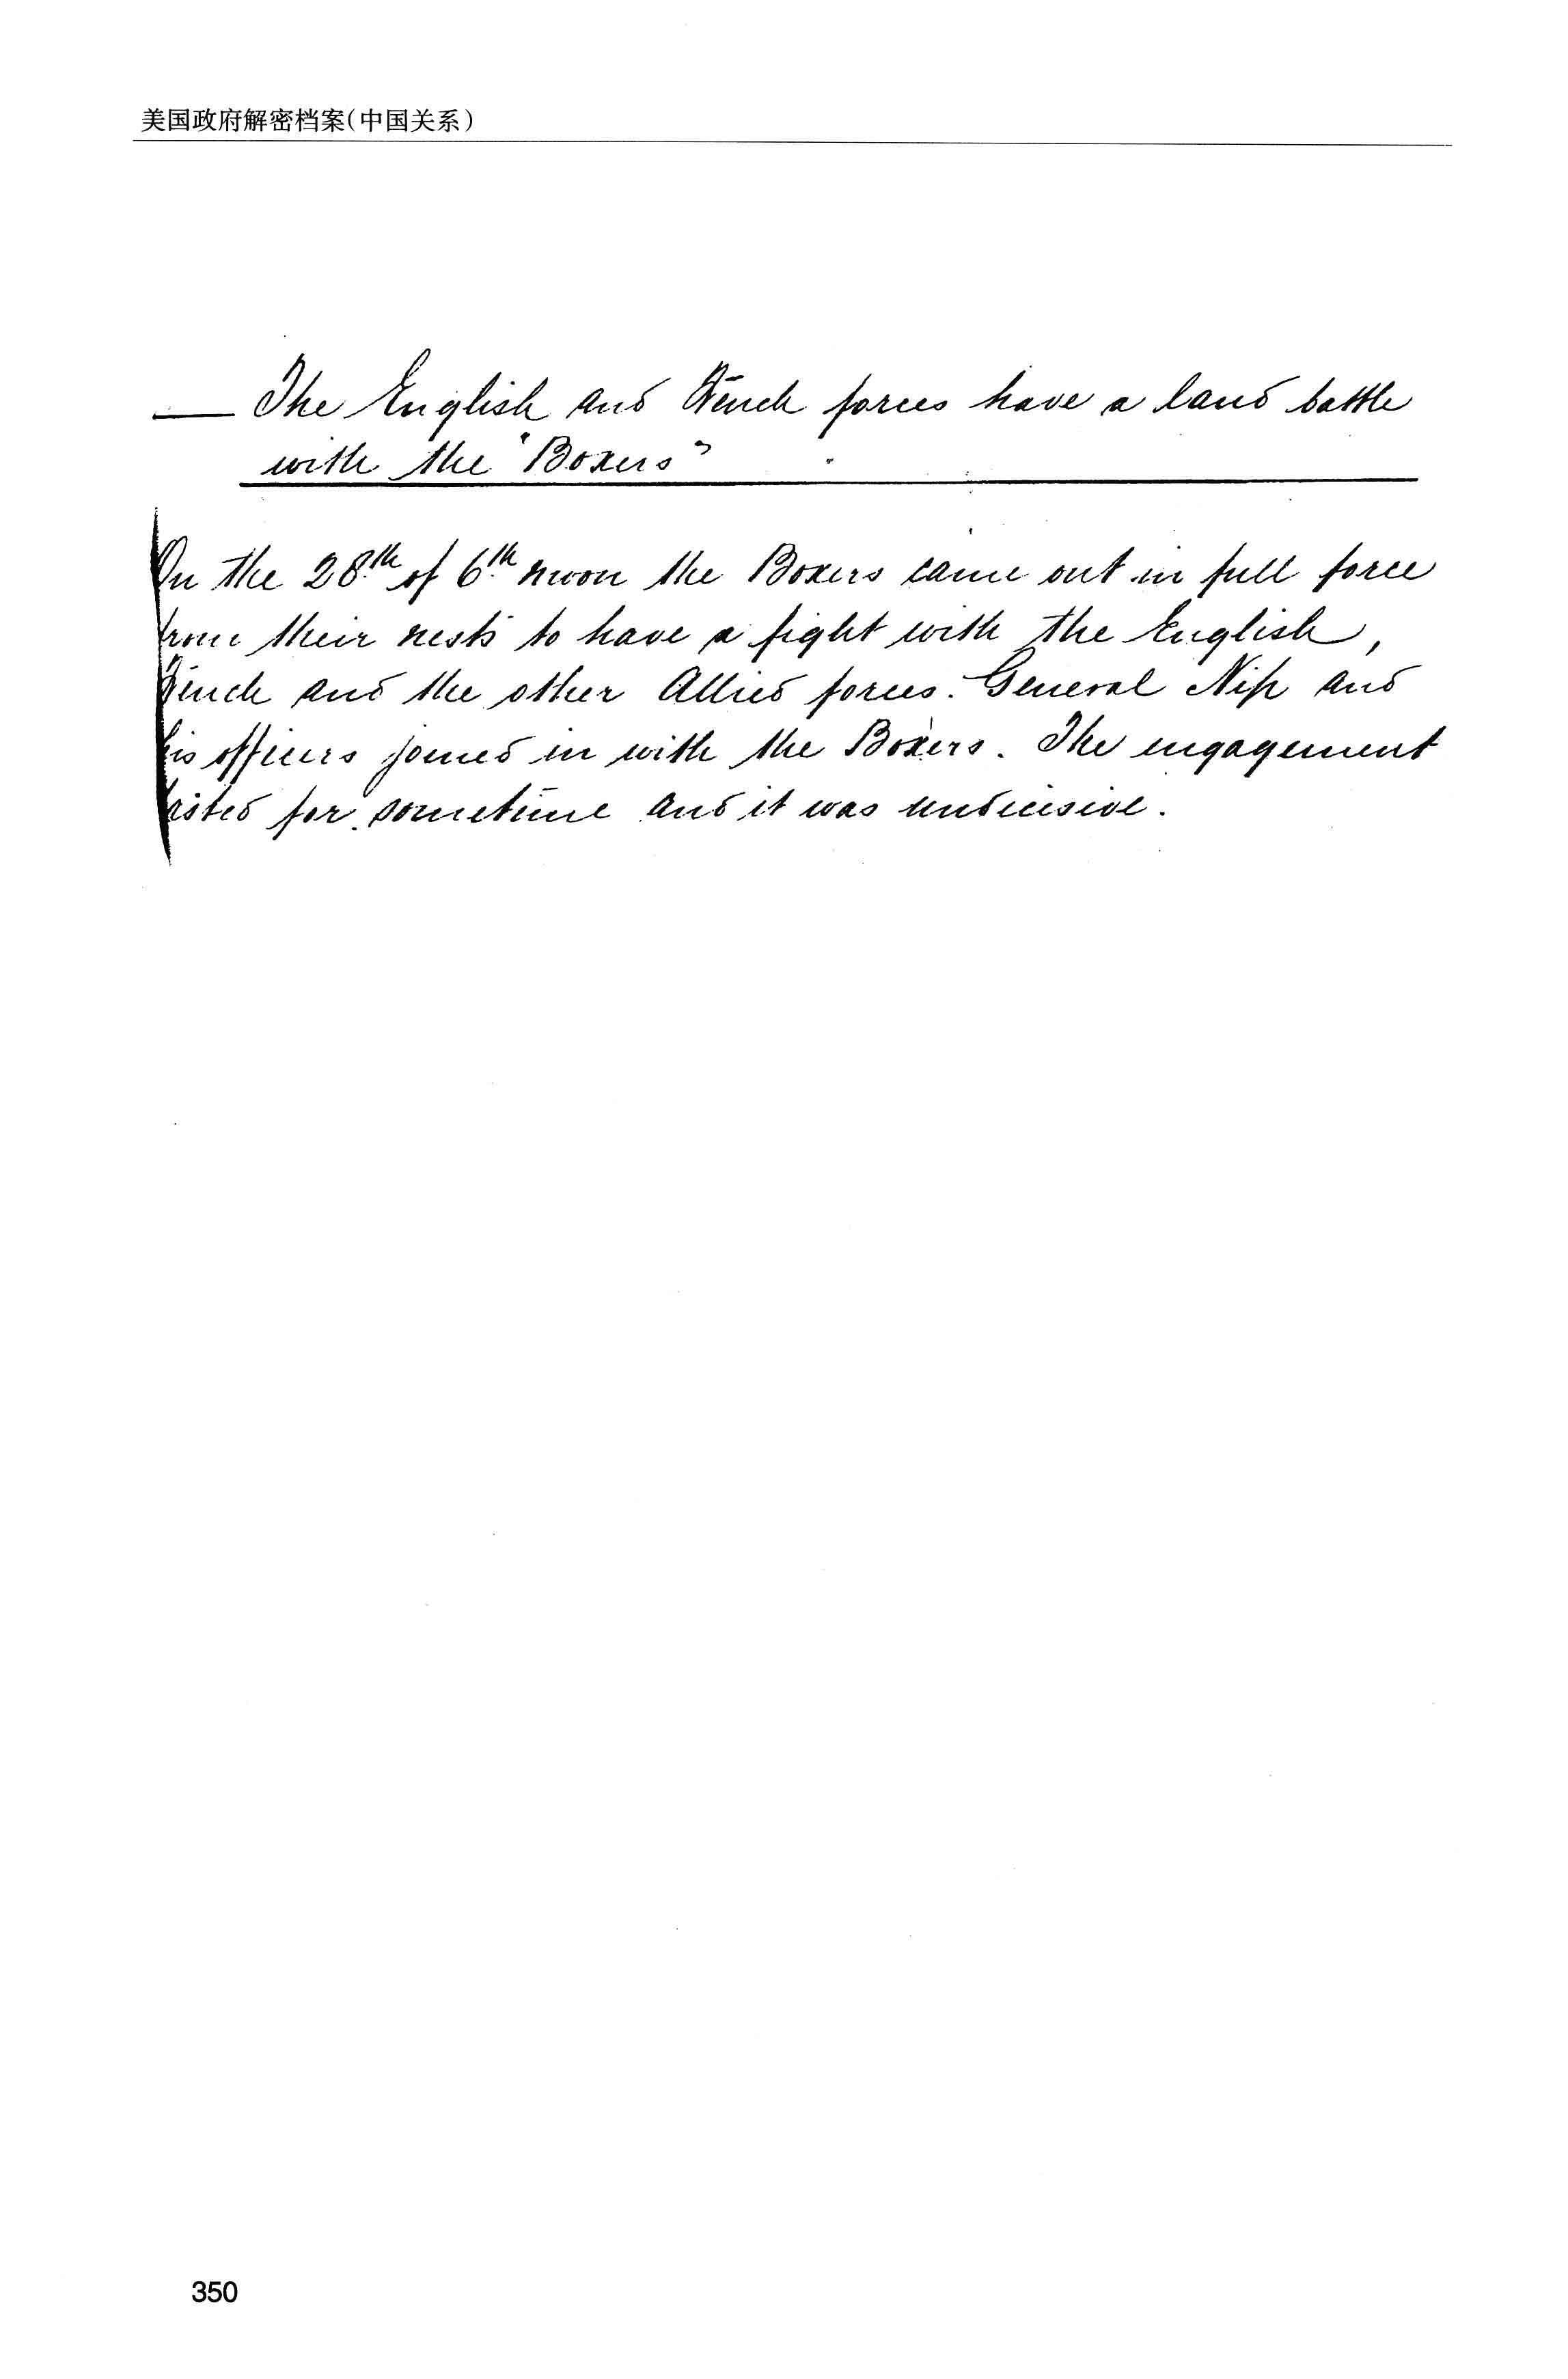 美国政府解密档案(中国关系)
— The English and French forces have a land battle
with the "Boxers"
On the 28th of 6th moon the Boxers came out in full force
from their nests to have a fight with the English,
French and the other Allied forces. General Nip and
his officers joined in with the Boxers. The engagement
lasted for sometime and it was undecisive.
350